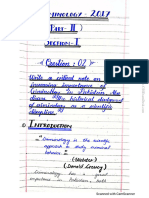 CRIMINOLOGY - 2017
(PART - II)
SECTION - I
Question : 02
Write a critical note on
increasing importance of
Criminology in Pakistan. Also
discuss the historical background
of criminology as a scientific
discipline.
① INTRODUCTION
"Criminology is the scientific
approach to study criminal
behavior."
(Donald
Criminology has a great
importance in
Scanned with CamScanner